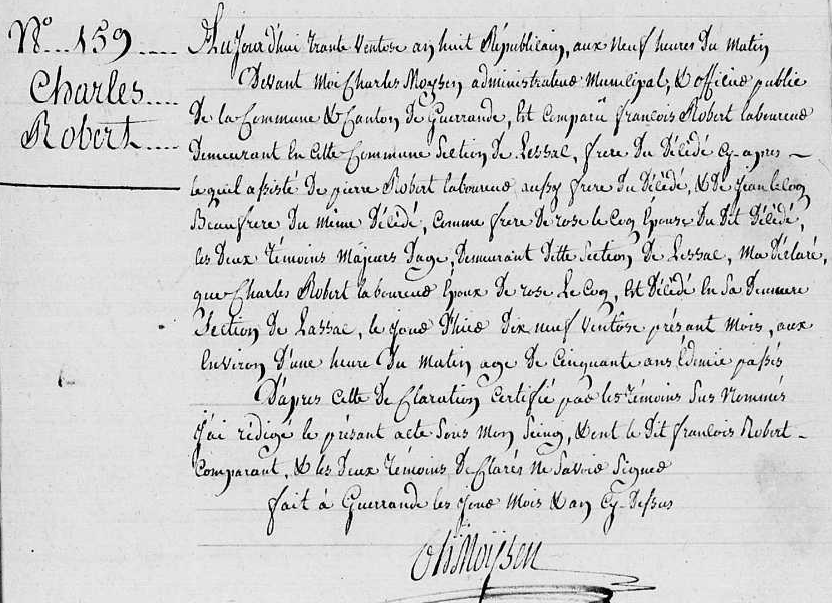 N.º 159
Charles
Robert
Aujourd'hui trante Ventose an huit Républicain, aux Neuf heures Du Matin
Devant Moi Charles Moysen administrateur Municipal, & officier public
De la Commune & Canton De Guerrande, Est Comparû francois Robert laboureur
Demeurant En Cette Commune Section De Lessac, frere Du Décédé Cy-apres
lequel assisté De pierre Robert laboureur aussy frere Du Décédé, & De Jean le Coq
Beaufrere Du Même Décédé, Comme frere De rose le Coq Epouse Du Dit Décédé,
les Deux témoins Majeurs D'age, Demeurant Ditte Section De Lessac, M'a Déclaré,
que Charles Robert laboureur Epoux De rose Le Coq, Est Décédé En Sa Demeure
Section De Lassac, le jour D'hier Dix neuf Ventôse présant Mois, aux
Environ D'une heure Du Matin age De Cinquante ans Edemie passés
D'apres Cette De Claration Certifié par les témoins Sus Nommés
j'ai rédigé le présant acte Sous Mon Seing, & ont le Dit francois Robert
Comparant, & les Deux témoins De Clarés Ne Savoir Signer
fait à Guerrande les jour Mois & an Cy-Dessus
Ch Moysen